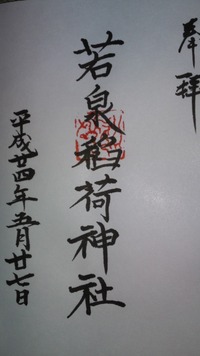 奉拝
若泉稲荷神社
平成廿四年五月廿七日